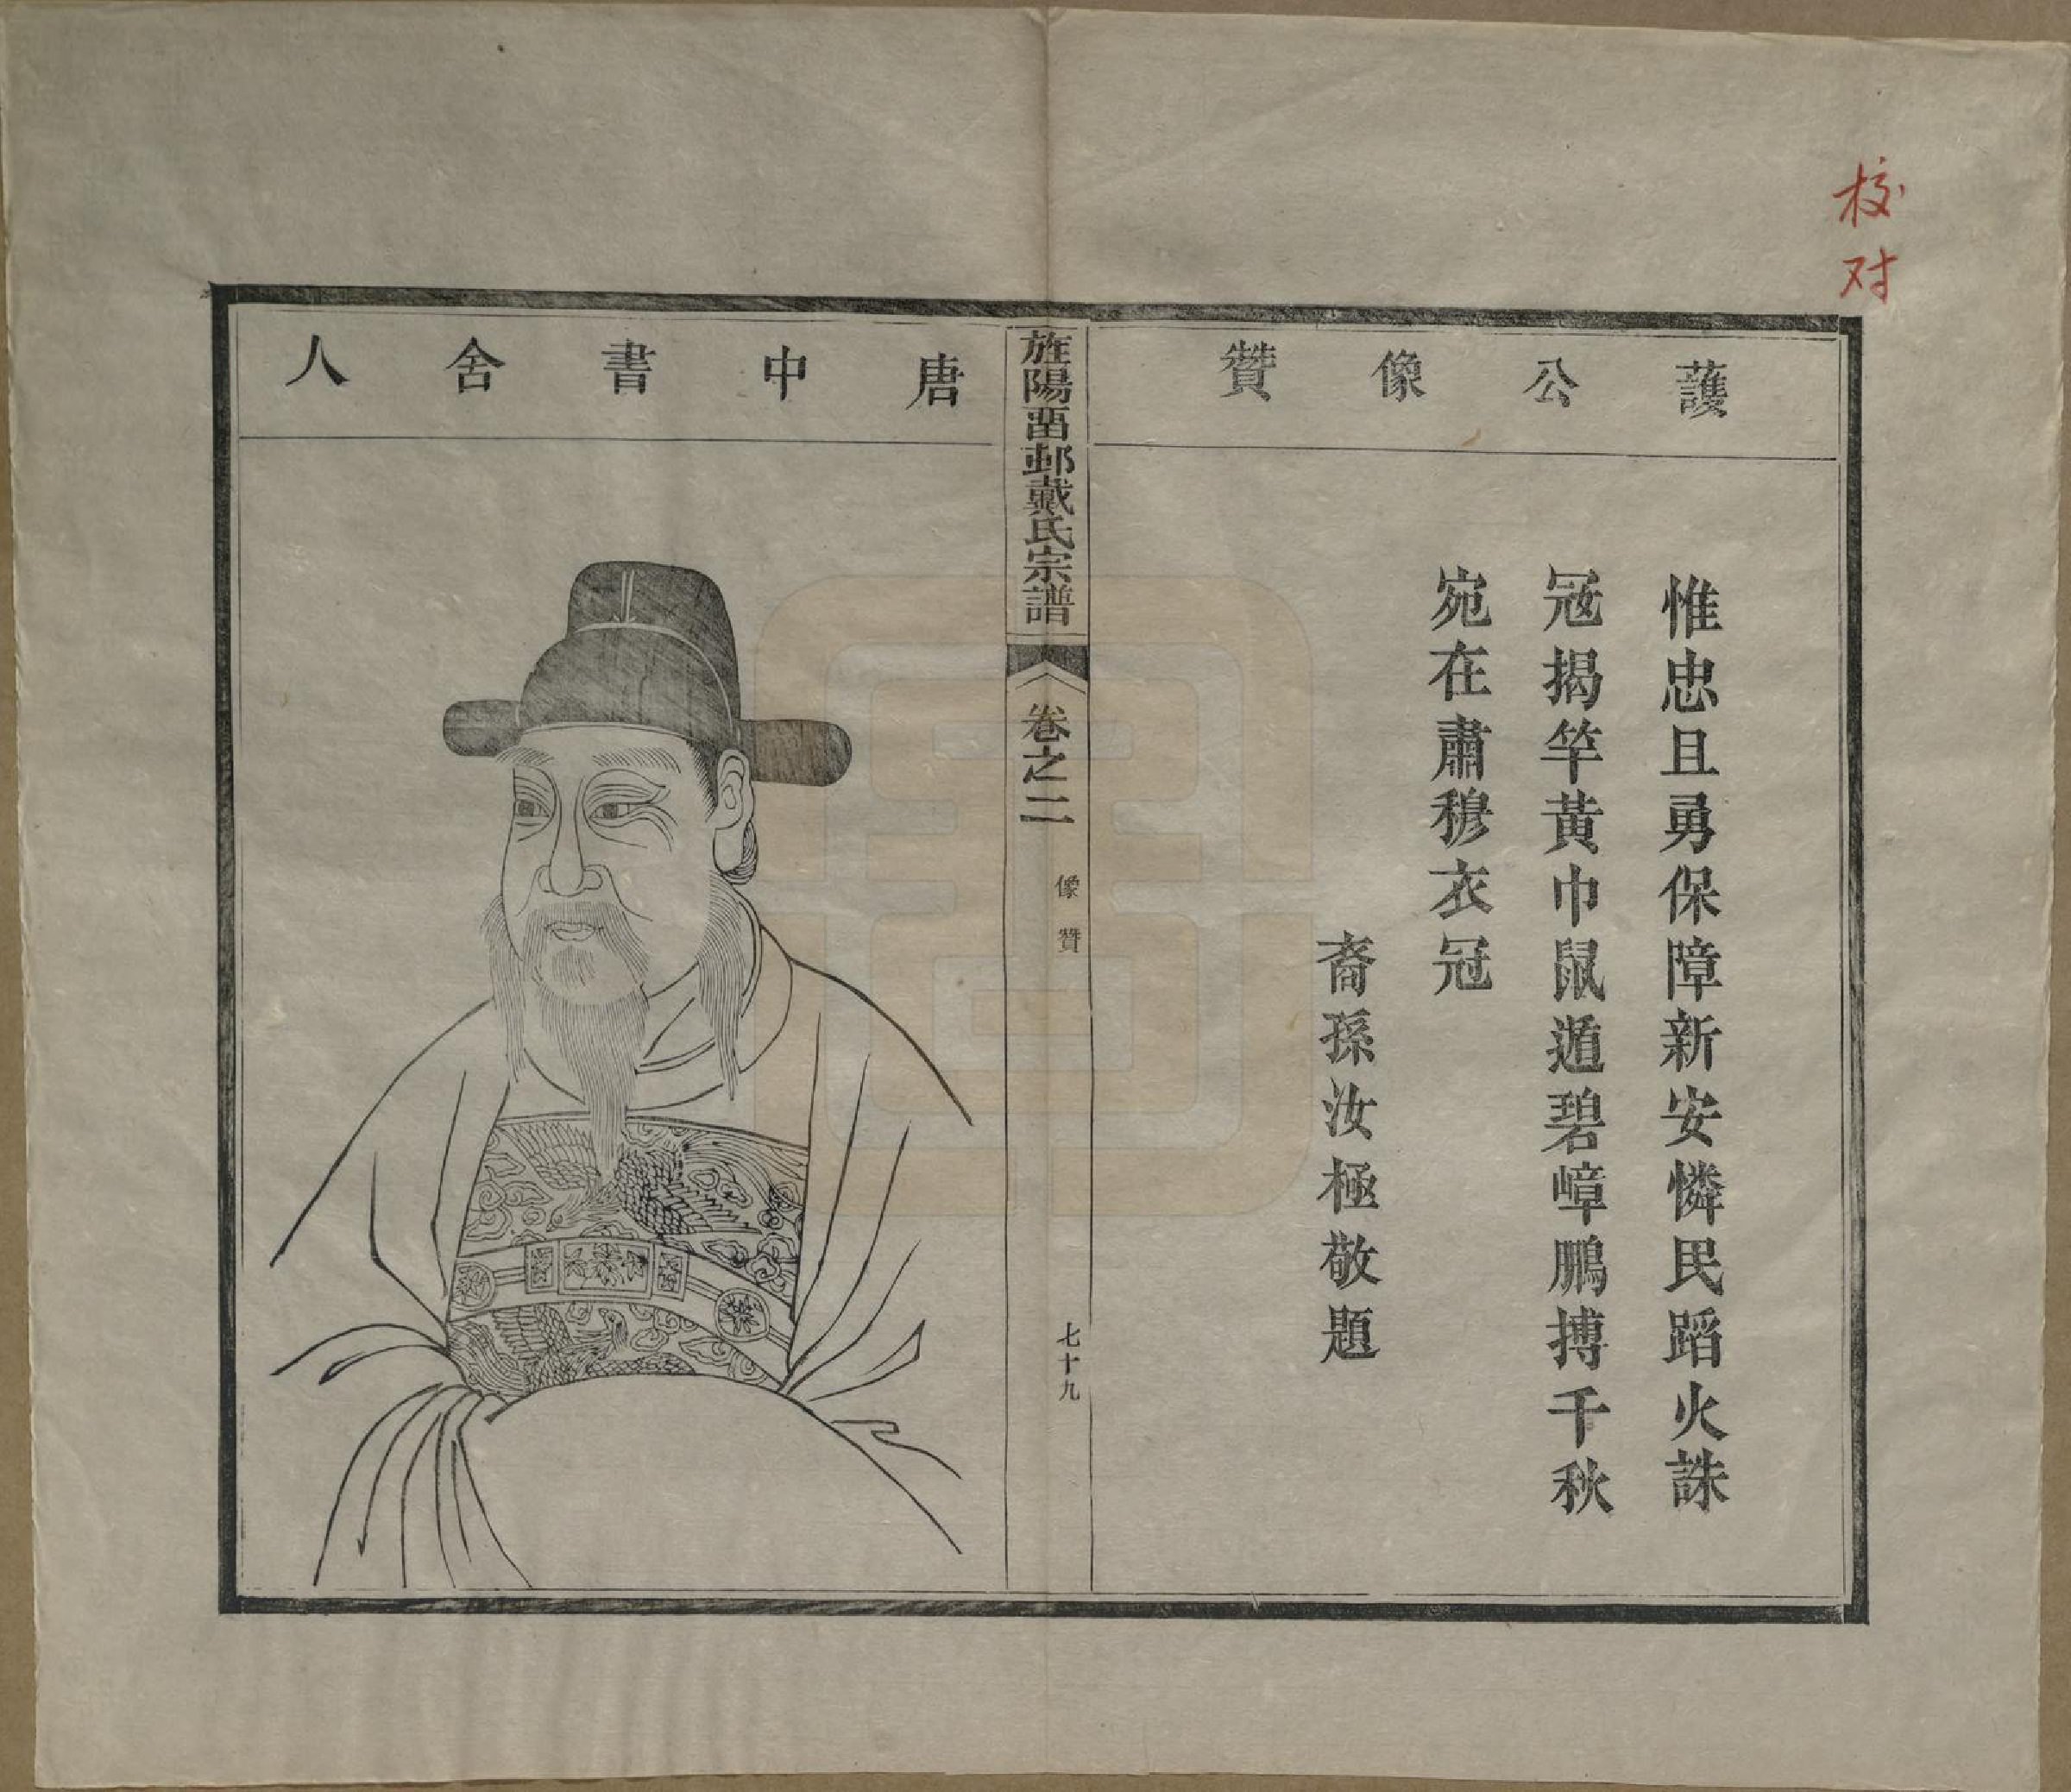 校对
䕶公像贊
惟忠且勇保障新安憐民蹈火誅
冦揭竿黃巾鼠遁碧嶂鵬搏千秋
宛在肅穆衣冠
裔孫汝極敬題
旌陽畱邨戴氏宗譜
卷之二
像贊
七十九
唐中書舍人